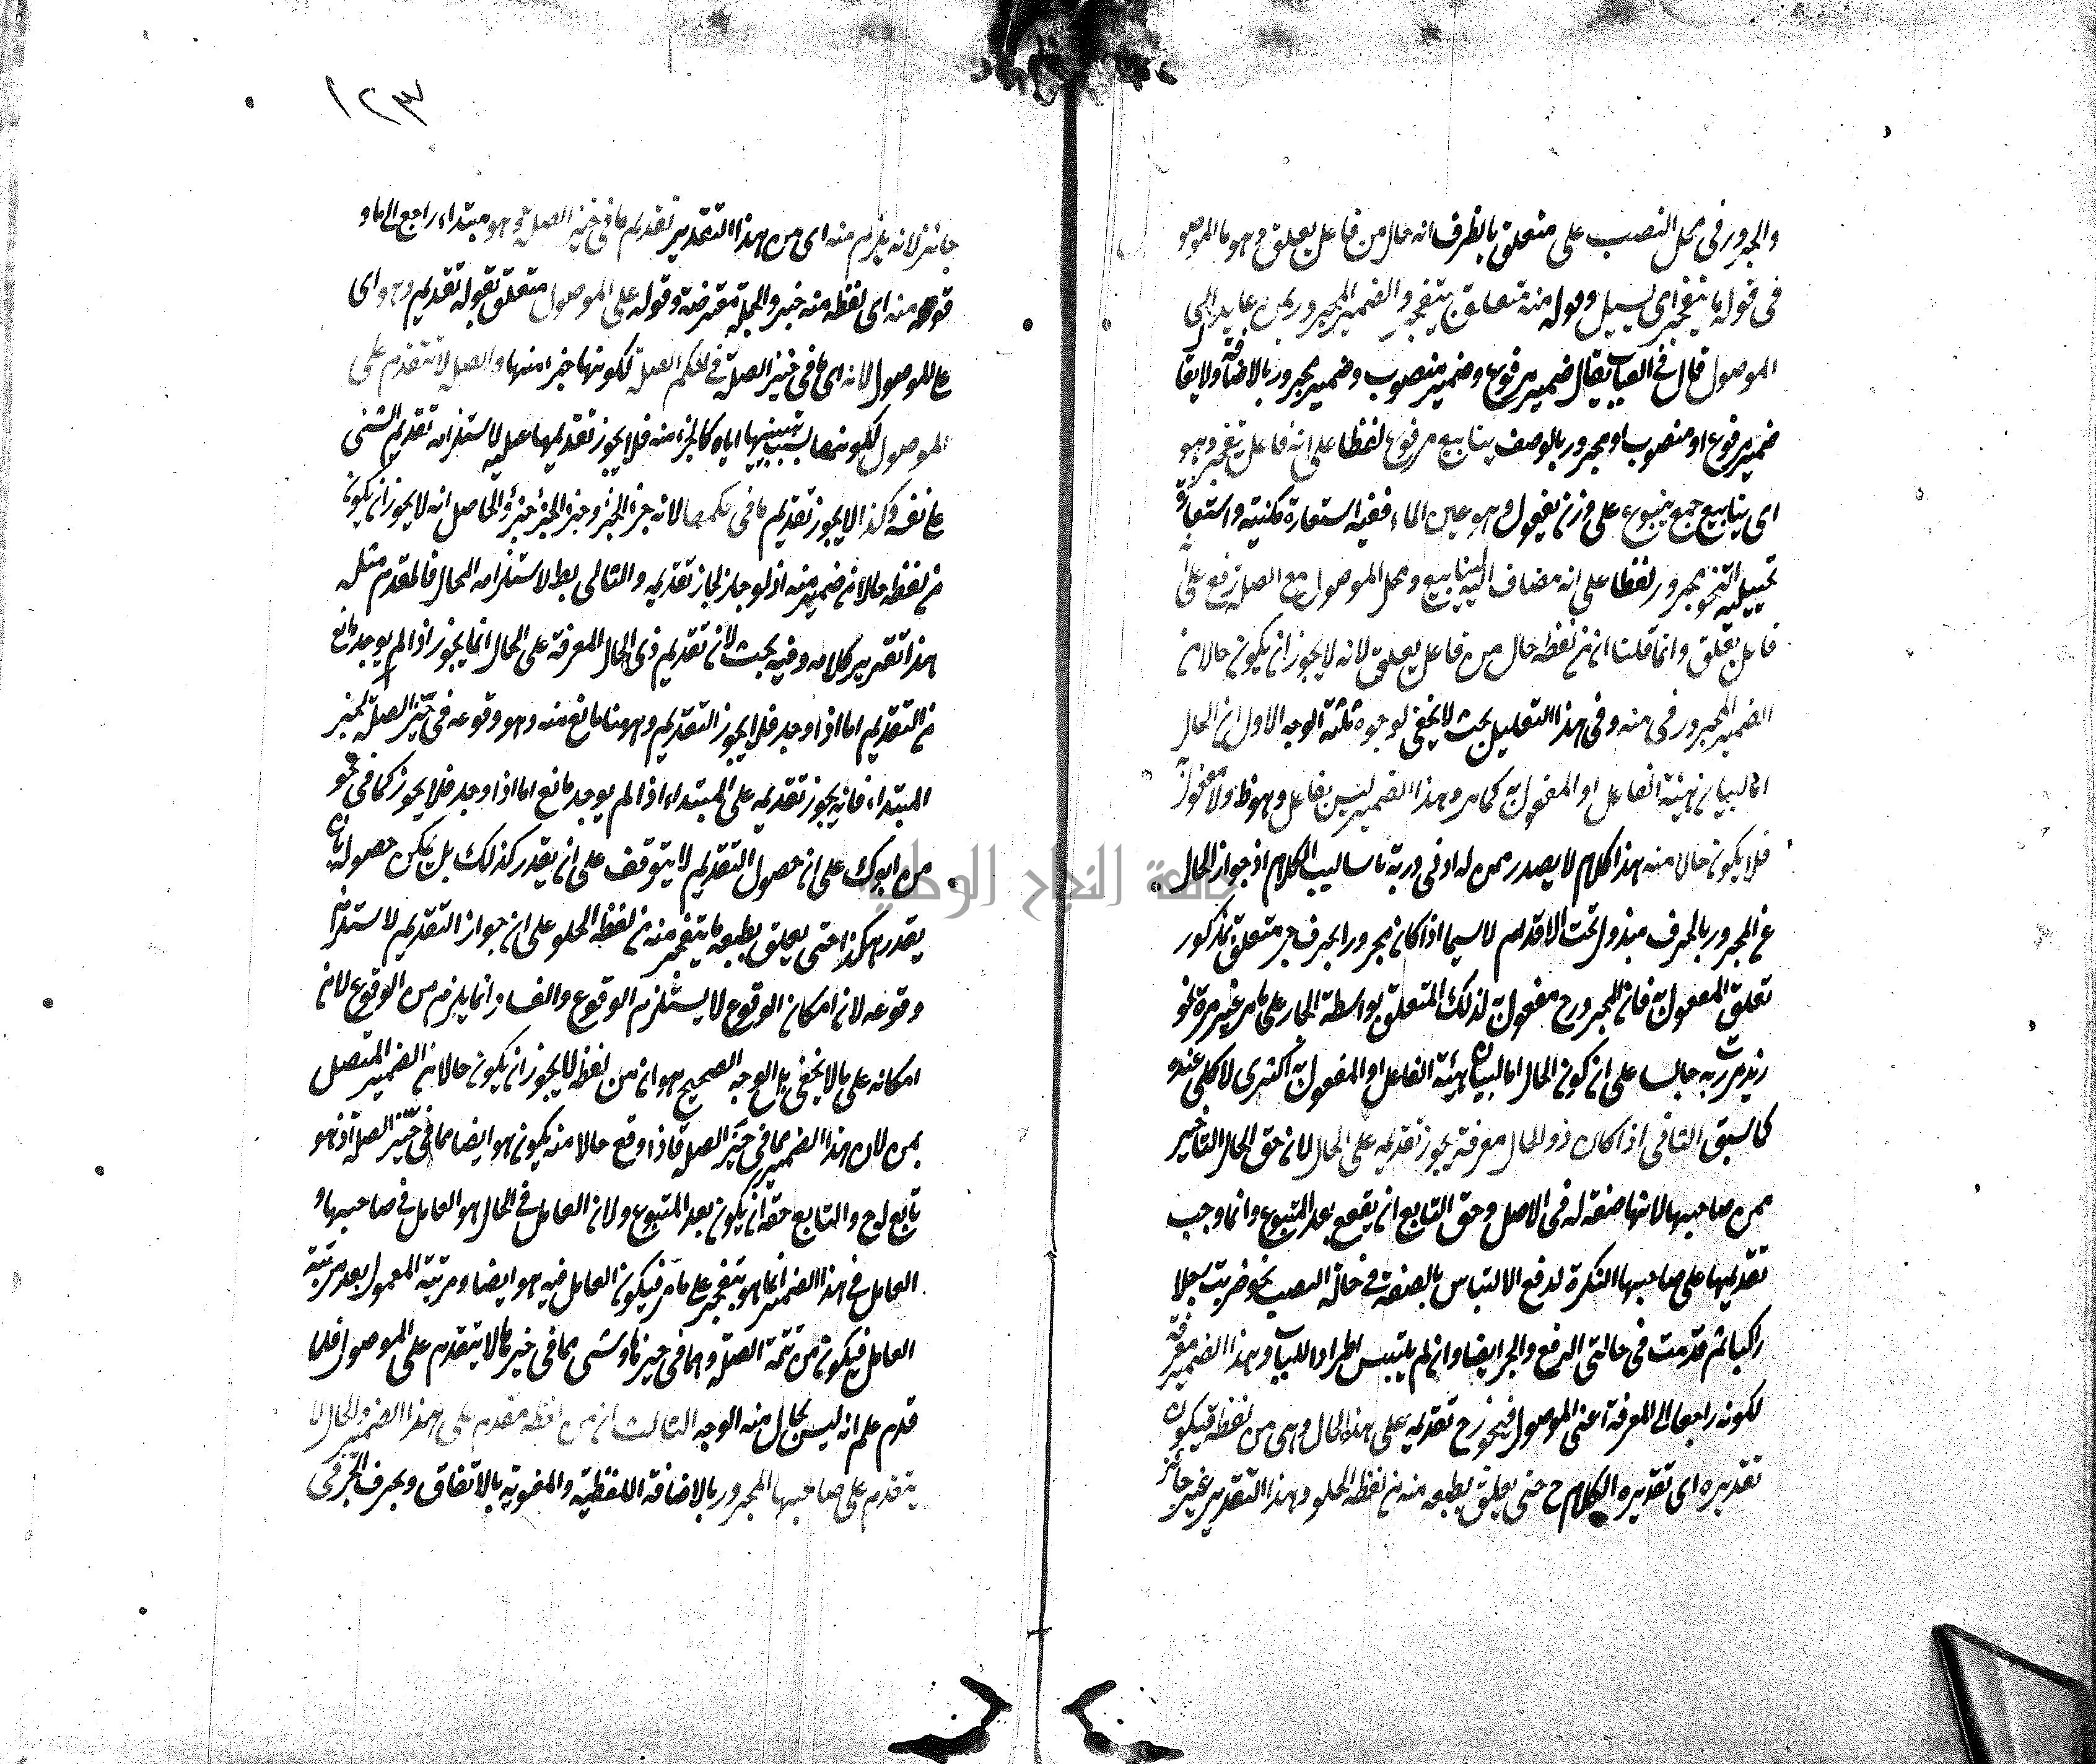 والمجرور في محل النصب على متعلق بالظرف انه حال من فاعل يعلق وهو ما الموصو
في قوله ما يتفجر اي يسيل وقوله منه متعلق بيتفجر والضمير المجرور بمن عايد الى
الموصول قال في العباب يقال ضمير مرفوع وضمير منصوب وضمير مجرور بالاضافة ولا يقا
ضمير مرفوع او منصوب او مجرور بالوصف ينابيع مرفوع لفظا على انه فاعل يتفجر وهو
اي ينابيع جمع ينبوع على وزن يفعول وهو عين الماء ففيه استعارة مكنية واستعارة
تخييلية النحو مجرور لفظا على انه مضاف اليه لينابيع ومحل الموصول مع الصلة رفع على
فاعل يعلق وانما قلنا ان من لفظه حال من فاعل يعلق لانه لا يجوز ان يكون حالا من
الضمير المجرور في منه وفي هذا التعليل بحث لا يخفى لوجوه ثلثة الوجه الاول ان الحال
انما لبيان هيئة الفاعل او المفعول به كما مر وهذا الضمير ليس بفاعل وهو ظ ولا مفعول
فلا يكون حالا منه هذا كلام لا يصدر ممن له ادنى دربة باساليب الكلام اذ جواز الحال
عن المجرور بالحرف مبذول تحت الاقدام لا سيما اذا كان مجرورا بحرف جر متعلق بمذكور
تعلق المفعول به فان المجرور ح مفعول به لذلك المتعلق بواسطة الجار على ما مر غير مرة نحو
زيد مررت به جالسا على ان كون الحال اما لبيان هيئة الفاعل او المفعول به اكثري لا كلي عنده
كما سبق الثاني اذا كان ذو الحال معرفة يجوز تقديمه على الحال لان حق الحال التاخير
عن صاحبها لانها صفة له في الاصل وحق التابع ان يقع بعد المتبوع وانما وجب
تقديمها على صاحبها النكرة لدفع الالتباس بالصفة في حالة النصب نحو ضربت رجلا
راكبا ثم قدمت في حالتي الرفع والجر ايضا وان لم يلتبس اطرادا للباب وهذا الضمير معرفة
لكونه راجعا الى المعرفة اعني الموصول فيجوز ح تقديمه على هذا الحال وهي من لفظه فيكون
تقديره اي تقدير الكلام ح حتى يعلق بطبعه منه من لفظه الحلو وهذا التقدير غير جائز
١٢٣
جائز لانه يلزم منه اي من هذا التقدير تقديم ما في حيز الصلة وهو مبتداء راجع الى ما و
قوله منه اي لفظه منه خبر والجملة معترضة وقوله على الموصول متعلق بقوله تقديم وهو اي
ما للموصول لانه اي ما في حيز الصلة في حكم الصلة لكونها جزا منها والصلة لا تتقدم على
الموصول لكونها بسبب تبيينها اياه كالجزء منه فلا يجوز تقديمها عليه لاستلزامه تقديم الشئ
على نفسه وكذا لا يجوز تقديم ما في حكمها لانه جزء الجزء وجزء الجزء جزء والحاصل انه لا يجوز ان يكون
من لفظه حالا من ضمير منه اذ لو جاز لجاز تقديمه والتالي بط لاستلزامه المحال فالمقدم مثله
هذا تقرير كلامه وفيه بحث لان تقديم ذي الحال المعرفة على الحال انما يجوز اذا لم يوجد مانع
من التقديم اما اذا وجد فلا يجوز التقديم وههنا مانع منه وهو وقوعه في حيز الصلة كخبر
المبتداء فانه يجوز تقديمه على المبتداء اذا لم يوجد مانع اما اذا وجد فلا يجوز كما في نحو
من ابوك على ان حصول التقديم لا يتوقف على ان يقدر كذلك بل يمكن حصوله بان
يقدر هكذا حتى يعلق بطبعه ما يتفجر منه من لفظه الحلو على ان جواز التقديم لا يستلزم
وقوعه لان امكان الوقوع لا يستلزم الوقوع والفساد انما يلزم من الوقوع لا من
امكانه على ما لا يخفى بل الوجه الصحيح هو ان من لفظه لا يجوز ان يكون حالا من الضمير المتصل
بمن لان هذا الضمير مما في حيز الصلة فاذا وقع حالا منه يكون هو ايضا مما في حيز الصلة اذ هو
تابع له ح والتابع حقه ان يكون بعد المتبوع ولان العامل في الحال هو العامل في صاحبها و
العامل في هذا الضمير انما هو يتفجر على ما مر فيكون العامل فيه هو ايضا ومرتبة المعمول بعد مرتبة
العامل فيكون من تتمة الصلة ومما في حيزها وشئ مما في حيزها لا يتقدم على الموصول فلما
قدم علم انه ليس بحال منه الوجه الثالث ان من لفظه مقدم على هذا الضمير والحال لا
يتقدم على صاحبها المجرور بالاضافة اللفظية والمعنوية بالاتفاق وبحرف الجر في
جامعة النجاح الوطنية